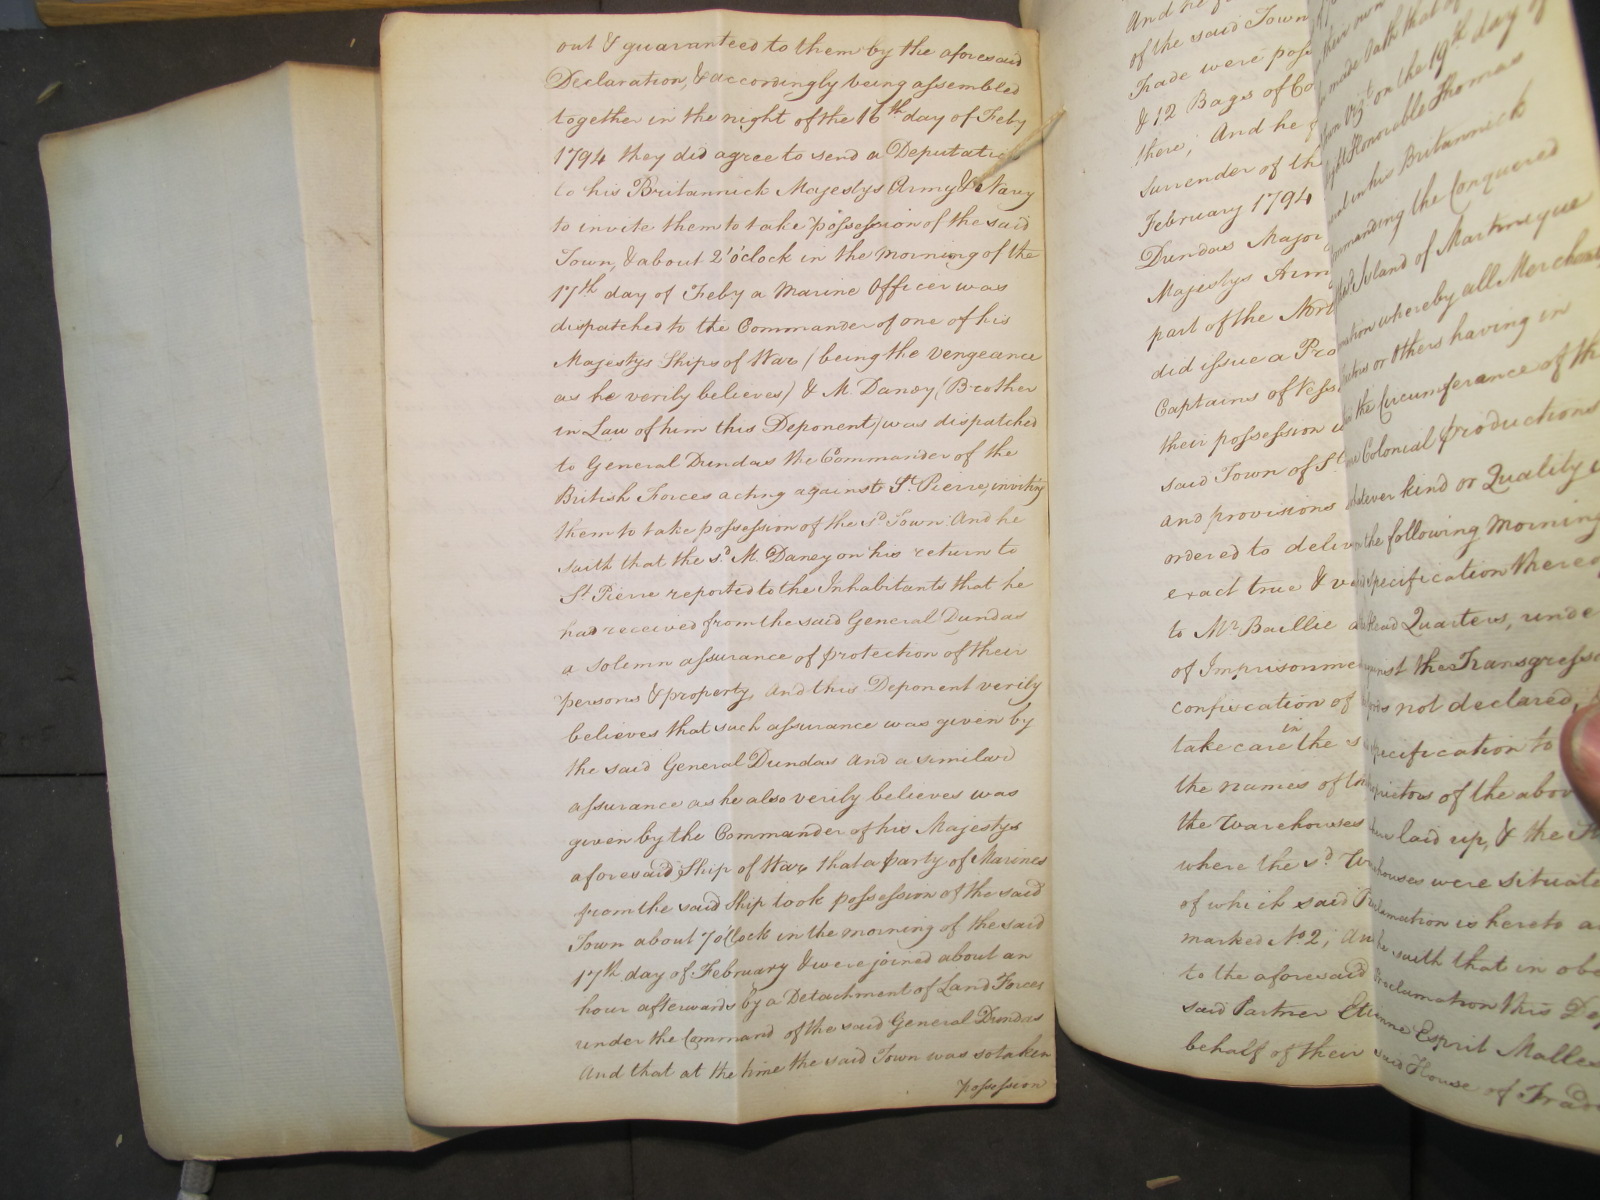 out & guaranteed to them by the aforesaid
Declaration, & accordingly being assembled
together in the night of the 16th day of Feby
1794 they did agree to send a Deputation
to his Britannick Majestys Army & Navy
to invite them to take possession of the said
Town, & about 2 o'clock in the morning of the
17th day of Feby a Marine Officer was
dispatched to the Commander of one of his
Majestys Ships of War (being the Vengeance
as he verily believes) & M. Daney (Brother
in Law of him this Deponent) was dispatched
to General Dundas the Commander of the
British Forces acting against St. Pierre, inviting
them to take possession of the sd Town And he
saith that the sd. M. Daney on his return to
St. Pierre reported to the Inhabitants that he
had received from the said General Dundas
a solemn assurance of protection of their
persons & property, And this Deponent verily
believes that such assurance was given by
the said General Dundas And a similar
assurance as he also verily believes was
given by the Commander of his Majestys
aforesaid Ship of War, that a party of Marines
from the said Ship took possession of the said
Town about 7 o'Clock in the morning of the said
17th day of February & were joined about an
hour afterwards by a Detachment of Land Forces
under the Command of the said General Dundas
And that at the time the said Town was so taken
possession
of the said Town
Trade were
& 12 Bags of
there; And he
Surrender of
February 1794
Dundas Major
Majestys
part of the
did issue a
Captains of
their possession
said Town of St
and provisions
ordered to
exact true &
to Mr. Baillie
of
of
take care in the
the names of
the Warehouses
where the sd
of which said
marked No 2; And
to the aforesaid
said Partner
behalf of their
their own
made Oath that
on the 19th day of
Honorable Thomas
in his Britannick
the Conquered
Island of Martinique
whereby all
or Others having in
the Circumference of the
Colonial productions
kind or Quality
the following Morning
Specification
Quarters,
the
not declared,
to
of the
laid up, & the
were situate
is hereto
saith that in
this
Esprit
said House of